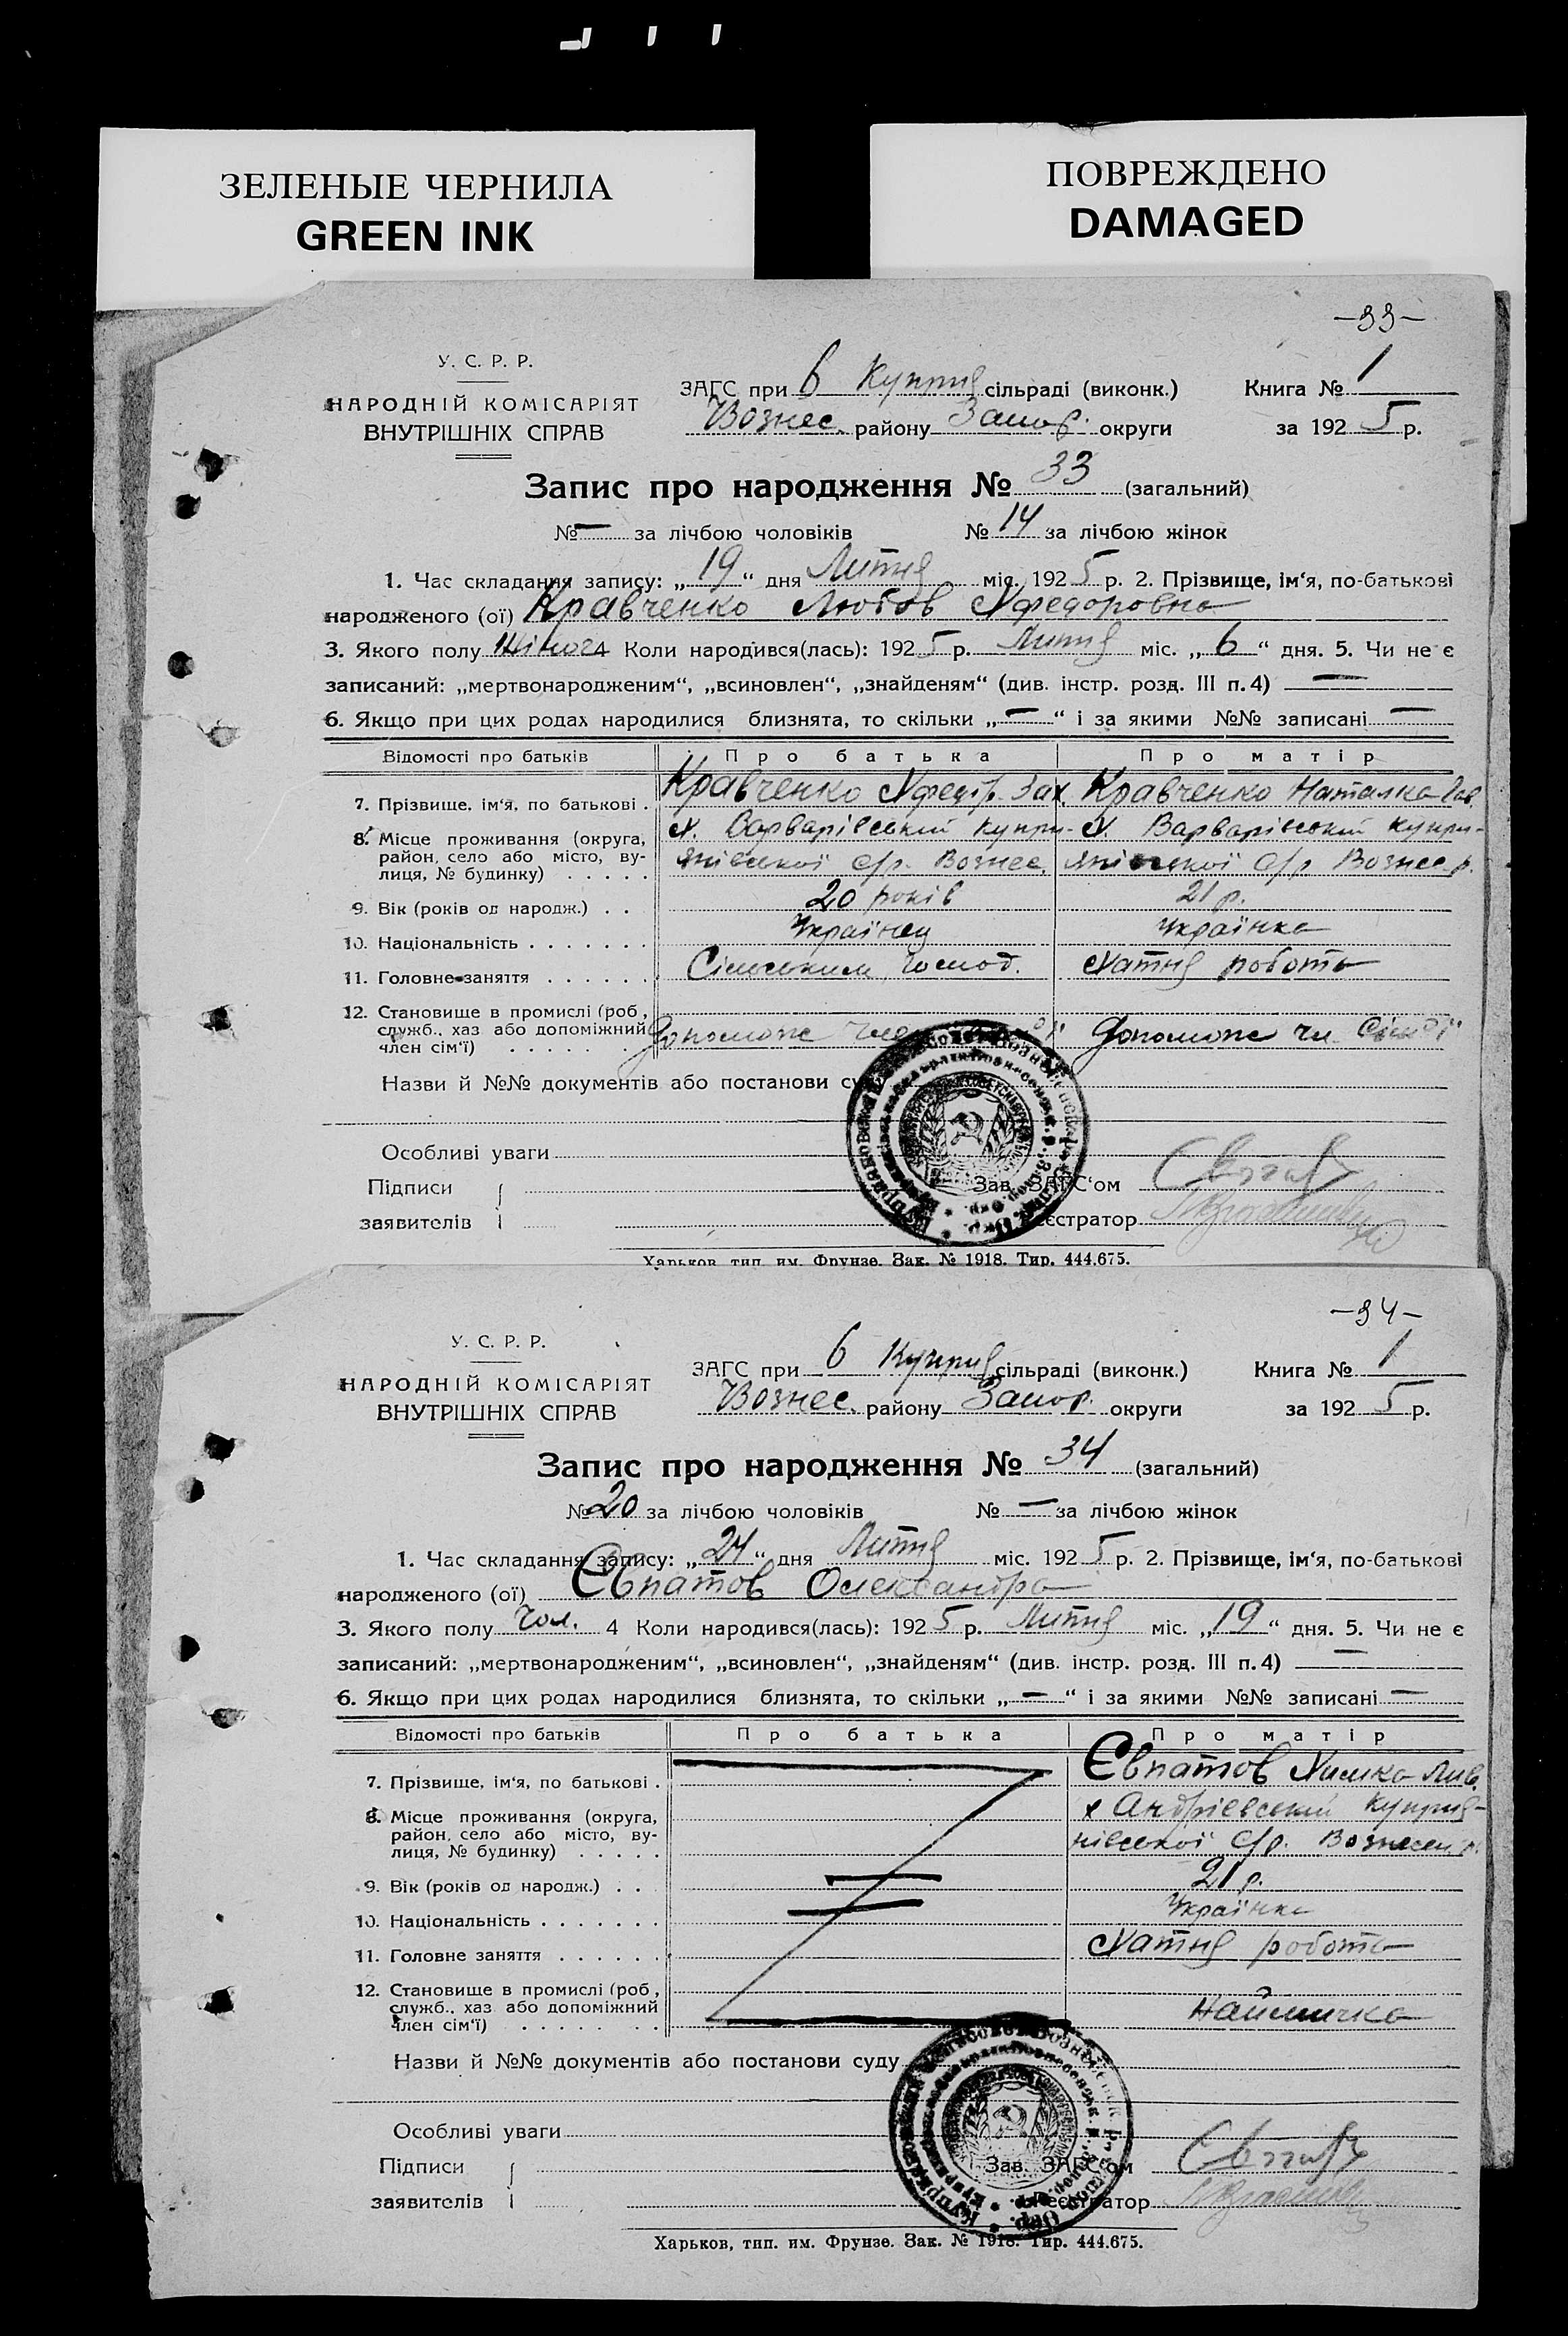 ЗЕЛЕНЫЕ ЧЕРНИЛА
GREEN INK
ПОВРЕЖДЕНО
DAMAGED
—33—
У. С. Р. Р.
НАРОДНІЙ КОМІСАРІЯТ
ВНУТРІШНІХ СПРАВ
ЗАГС при Куприя сільраді (виконк.)
Вознес. району Запор. округи
Книга № 1
за 1925 р.
Запис про народження № 33 (загальний)
№ — за лічбою чоловіків № 14 за лічбою жінок
1. Час складання запису: „19“ дня Лютня міс. 1925 р. 2. Прізвище, ім‘я, по-батькові
народженого (ої) Кравченко Любов Хфедоровна
3. Якого полу Жіноч 4 Коли народився(лась): 1925 р. Лютня міс. „6“ дня. 5. Чи не є
записаний: „мертвонародженим“, „всиновлен“, „знайденям“ (див. інстр. розд. III п. 4) —
6. Якщо при цих родах народилися близнята, то скільки „—“ і за якими №№ записані —
Відомості про батьків Про батька Про матір
7. Прізвище, ім‘я, по батькові . Кравченко Хфедір. Зах. Кравченко Наталка Гав.
8. Місце проживання (округа, район, село або місто, вулиця, № будинку) . . . . . х. Варварівський Купри- х. Варварівський Купри-
янівської с/р. Вознес. янівської с/р Вознес. р.
9. Вік (років од народж.) . . 20 років 21 р.
10. Національність . . . . . . . Українец Українка
11. Головне заняття . . . . . . Сільським Господ. Хатня робота
12. Становище в промислі (роб., служб., хаз. або допоміжний член сім‘ї) . . . . . . . Допоможе Допоможе чл. Сім‘ї
Назви й №№ документів або постанови
Особливі уваги
Підписи
заявителів
Зав. ЗАГС‘ом
Реєстратор
Харьков, тип. им. Фрунзе. Зак. № 1918. Тир. 444.675.
—34—
У. С. Р. Р.
НАРОДНІЙ КОМІСАРІЯТ
ВНУТРІШНІХ СПРАВ
ЗАГС при Куприя сільраді (виконк.)
Вознес. району Запор. округи
Книга № 1
за 1925 р.
Запис про народження № 34 (загальний)
№ 20 за лічбою чоловіків № — за лічбою жінок
1. Час складання запису: „24“ дня Лютня міс. 1925 р. 2. Прізвище, ім‘я, по-батькові
народженого (ої) Євпатов Олександра
3. Якого полу чол. 4 Коли народився(лась): 1925 р. Лютня міс. „19“ дня. 5. Чи не є
записаний: „мертвонародженим“, „всиновлен“, „знайденям“ (див. інстр. розд. III п. 4) —
6. Якщо при цих родах народилися близнята, то скільки „—“ і за якими №№ записані —
Відомості про батьків Про батька Про матір
7. Прізвище, ім‘я, по батькові . Євпатов Химка
8. Місце проживання (округа, район, село або місто, вулиця, № будинку) . . . . . х Андрієвський Куприя-
нівської с/р. Вознесен. р.
9. Вік (років од народж.) . . 21 р.
10. Національність . . . . . . . Українка
11. Головне заняття . . . . . . Хатня робота
12. Становище в промислі (роб., служб., хаз. або допоміжний член сім‘ї) . . . . . . . Наймичка
Назви й №№ документів або постанови суду
Особливі уваги
Підписи
заявителів
Зав. ЗАГС‘ом
Реєстратор
Харьков, тип. им. Фрунзе. Зак. № 1918. Тир. 444.675.